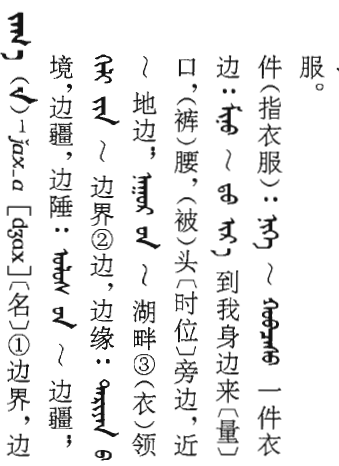 ᠵᠠᠬ᠎ᠠ ( ) ¹ǰax_a [dʒɑx]〔名〕①边界，边
境，边疆，边陲：ᠤᠯᠤᠰ ᠤᠨ ～ 边疆；
～ 边界②边，边缘：ᠲᠠᠷᠢᠶᠠᠨ ᠤ
～ 地边；ᠨᠠᠭᠤᠷ ᠤᠨ ～ 湖畔③(衣)领
口，(裤)腰，(被)头〔时位〕旁边，近
边：ᠮᠢᠨᠦ ～ ᠳᠦ ᠢᠷᠡ 到我身边来〔量〕
件(指衣服)：ᠨᠢᠭᠡ ～ ᠬᠤᠪᠴᠠᠰᠤ 一件衣
服。